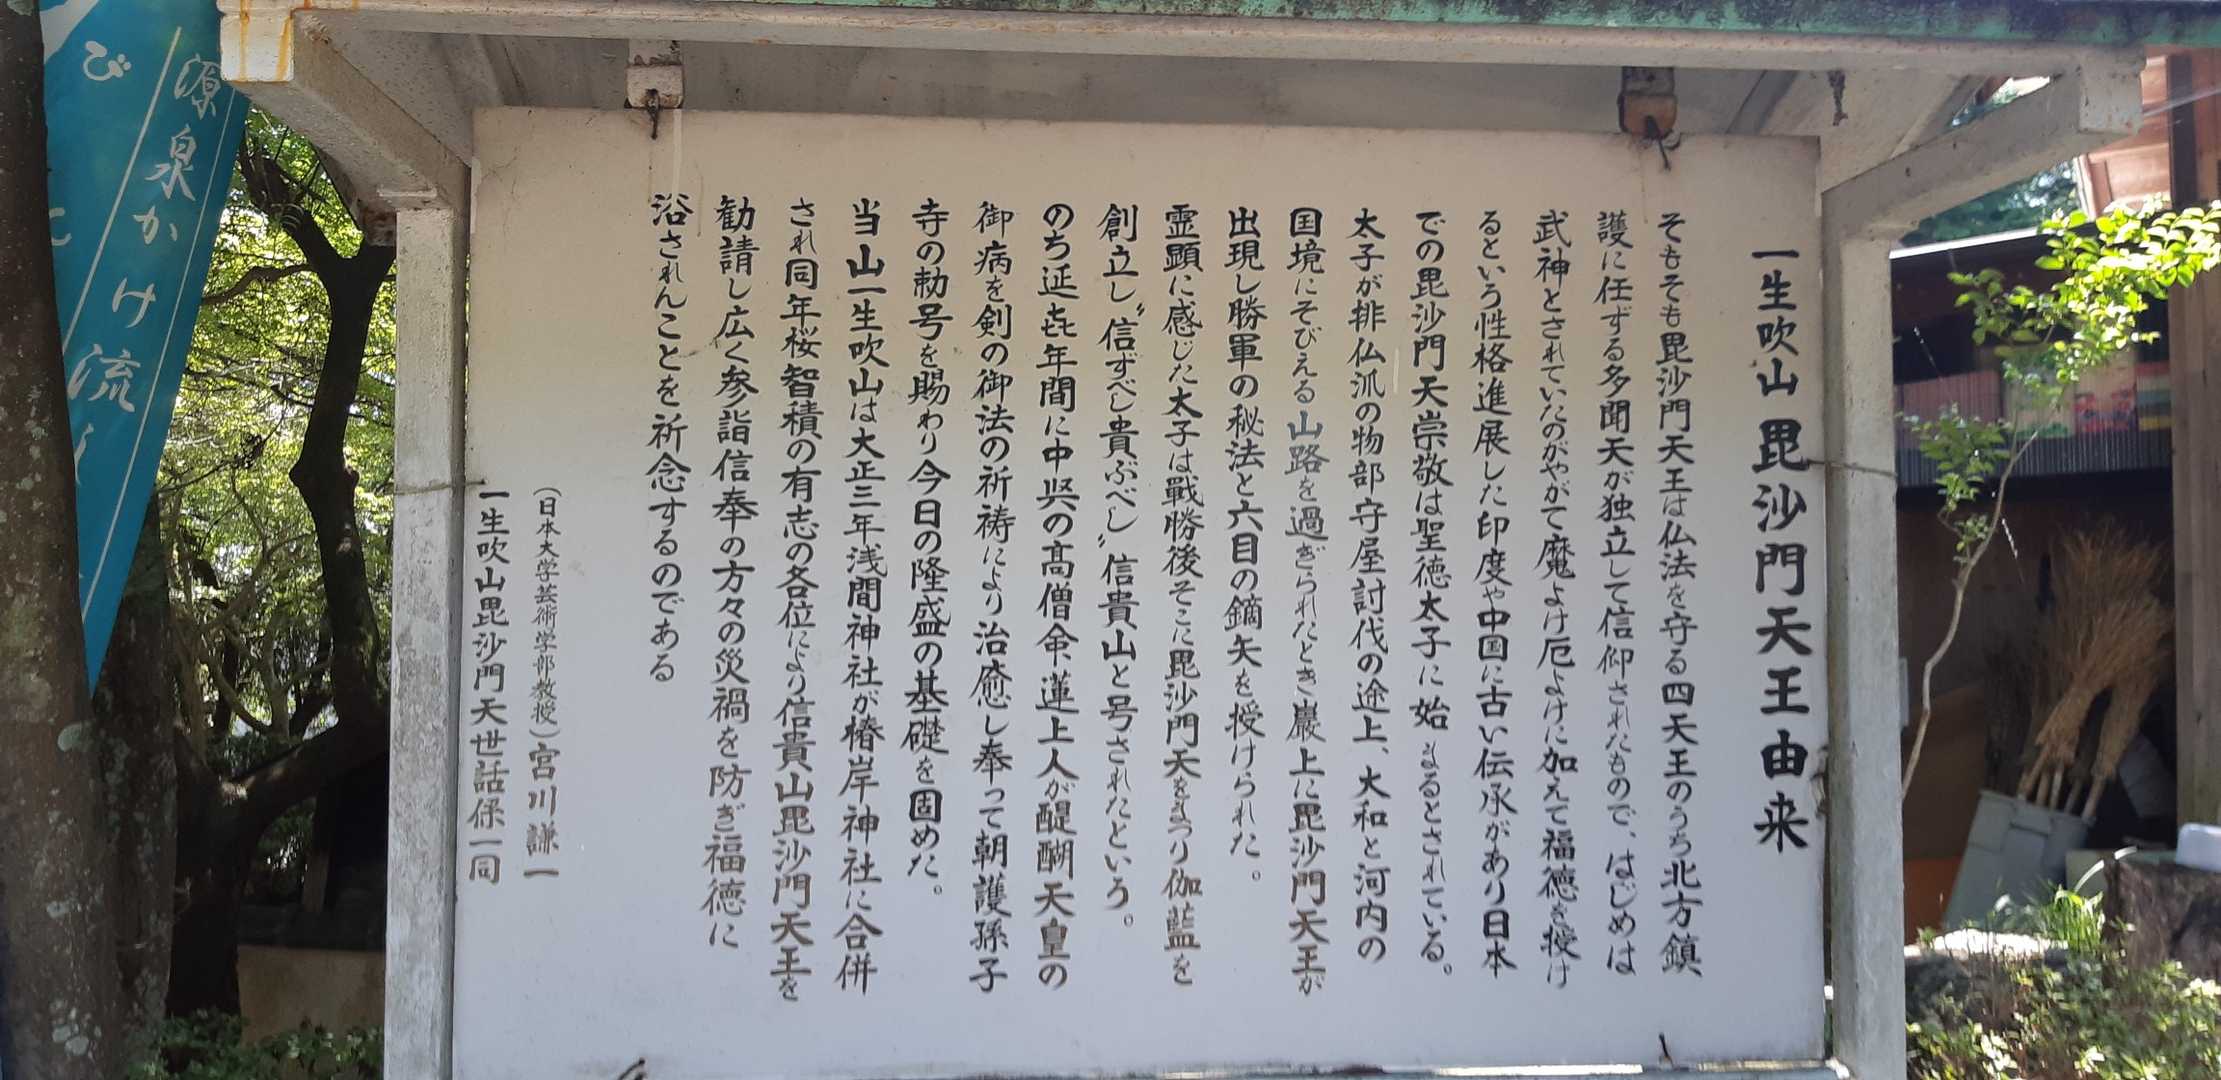 一生吹山 毘沙門天王由来
そもそも毘沙門天王は仏法を守る四天王のうち北方鎮
護に任ずる多聞天が独立して信仰されたもので、はじめは
武神とされていたのがやがて魔よけ厄よけに加えて福徳を授け
るという性格進展した印度や中国に古い伝承があり日本
での毘沙門天崇敬は聖徳太子に始まるとされている。
太子が排仏派の物部守屋討伐の途上、大和と河内の
国境にそびえる山路を過ぎられたとき巖上に毘沙門天王が
出現し勝軍の秘法と六目の鏑矢を授けられた。
霊顕に感じた太子は戦勝後そこに毘沙門天をまつり伽藍を
創立し〝信ずべし貴ぶべし〟信貴山と号されたという。
のち延㐂年間に中興の高僧命蓮上人が醍醐天皇の
御病を剣の御法の祈祷により治癒し奉って朝護孫子
寺の勅号を賜わり今日の隆盛の基礎を固めた。
当山一生吹山は大正三年浅間神社が椿岸神社に合併
され同年桜智積の有志の各位により信貴山毘沙門天王を
勧請し広く参詣信奉の方々の災禍を防ぎ福徳に
浴されんことを祈念するのである
(日本大学芸術学部教授)宮川謙一
一生吹山毘沙門天世話係一同
源泉かけ流し
び
に